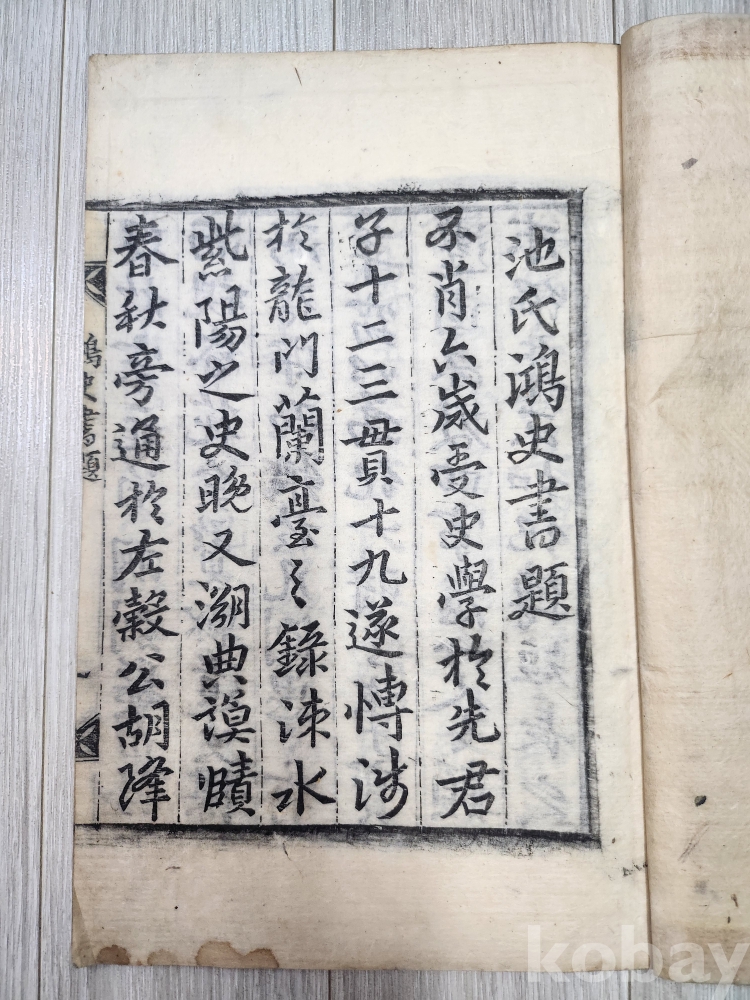 池氏鴻史書題
不肖六歲受史學於先君
子十二三貫十九遂博涉
於龍門蘭臺之錄涑水
紫陽之史晚又溯典謨賾
春秋旁通於左穀公胡降
鴻史書題
kobay